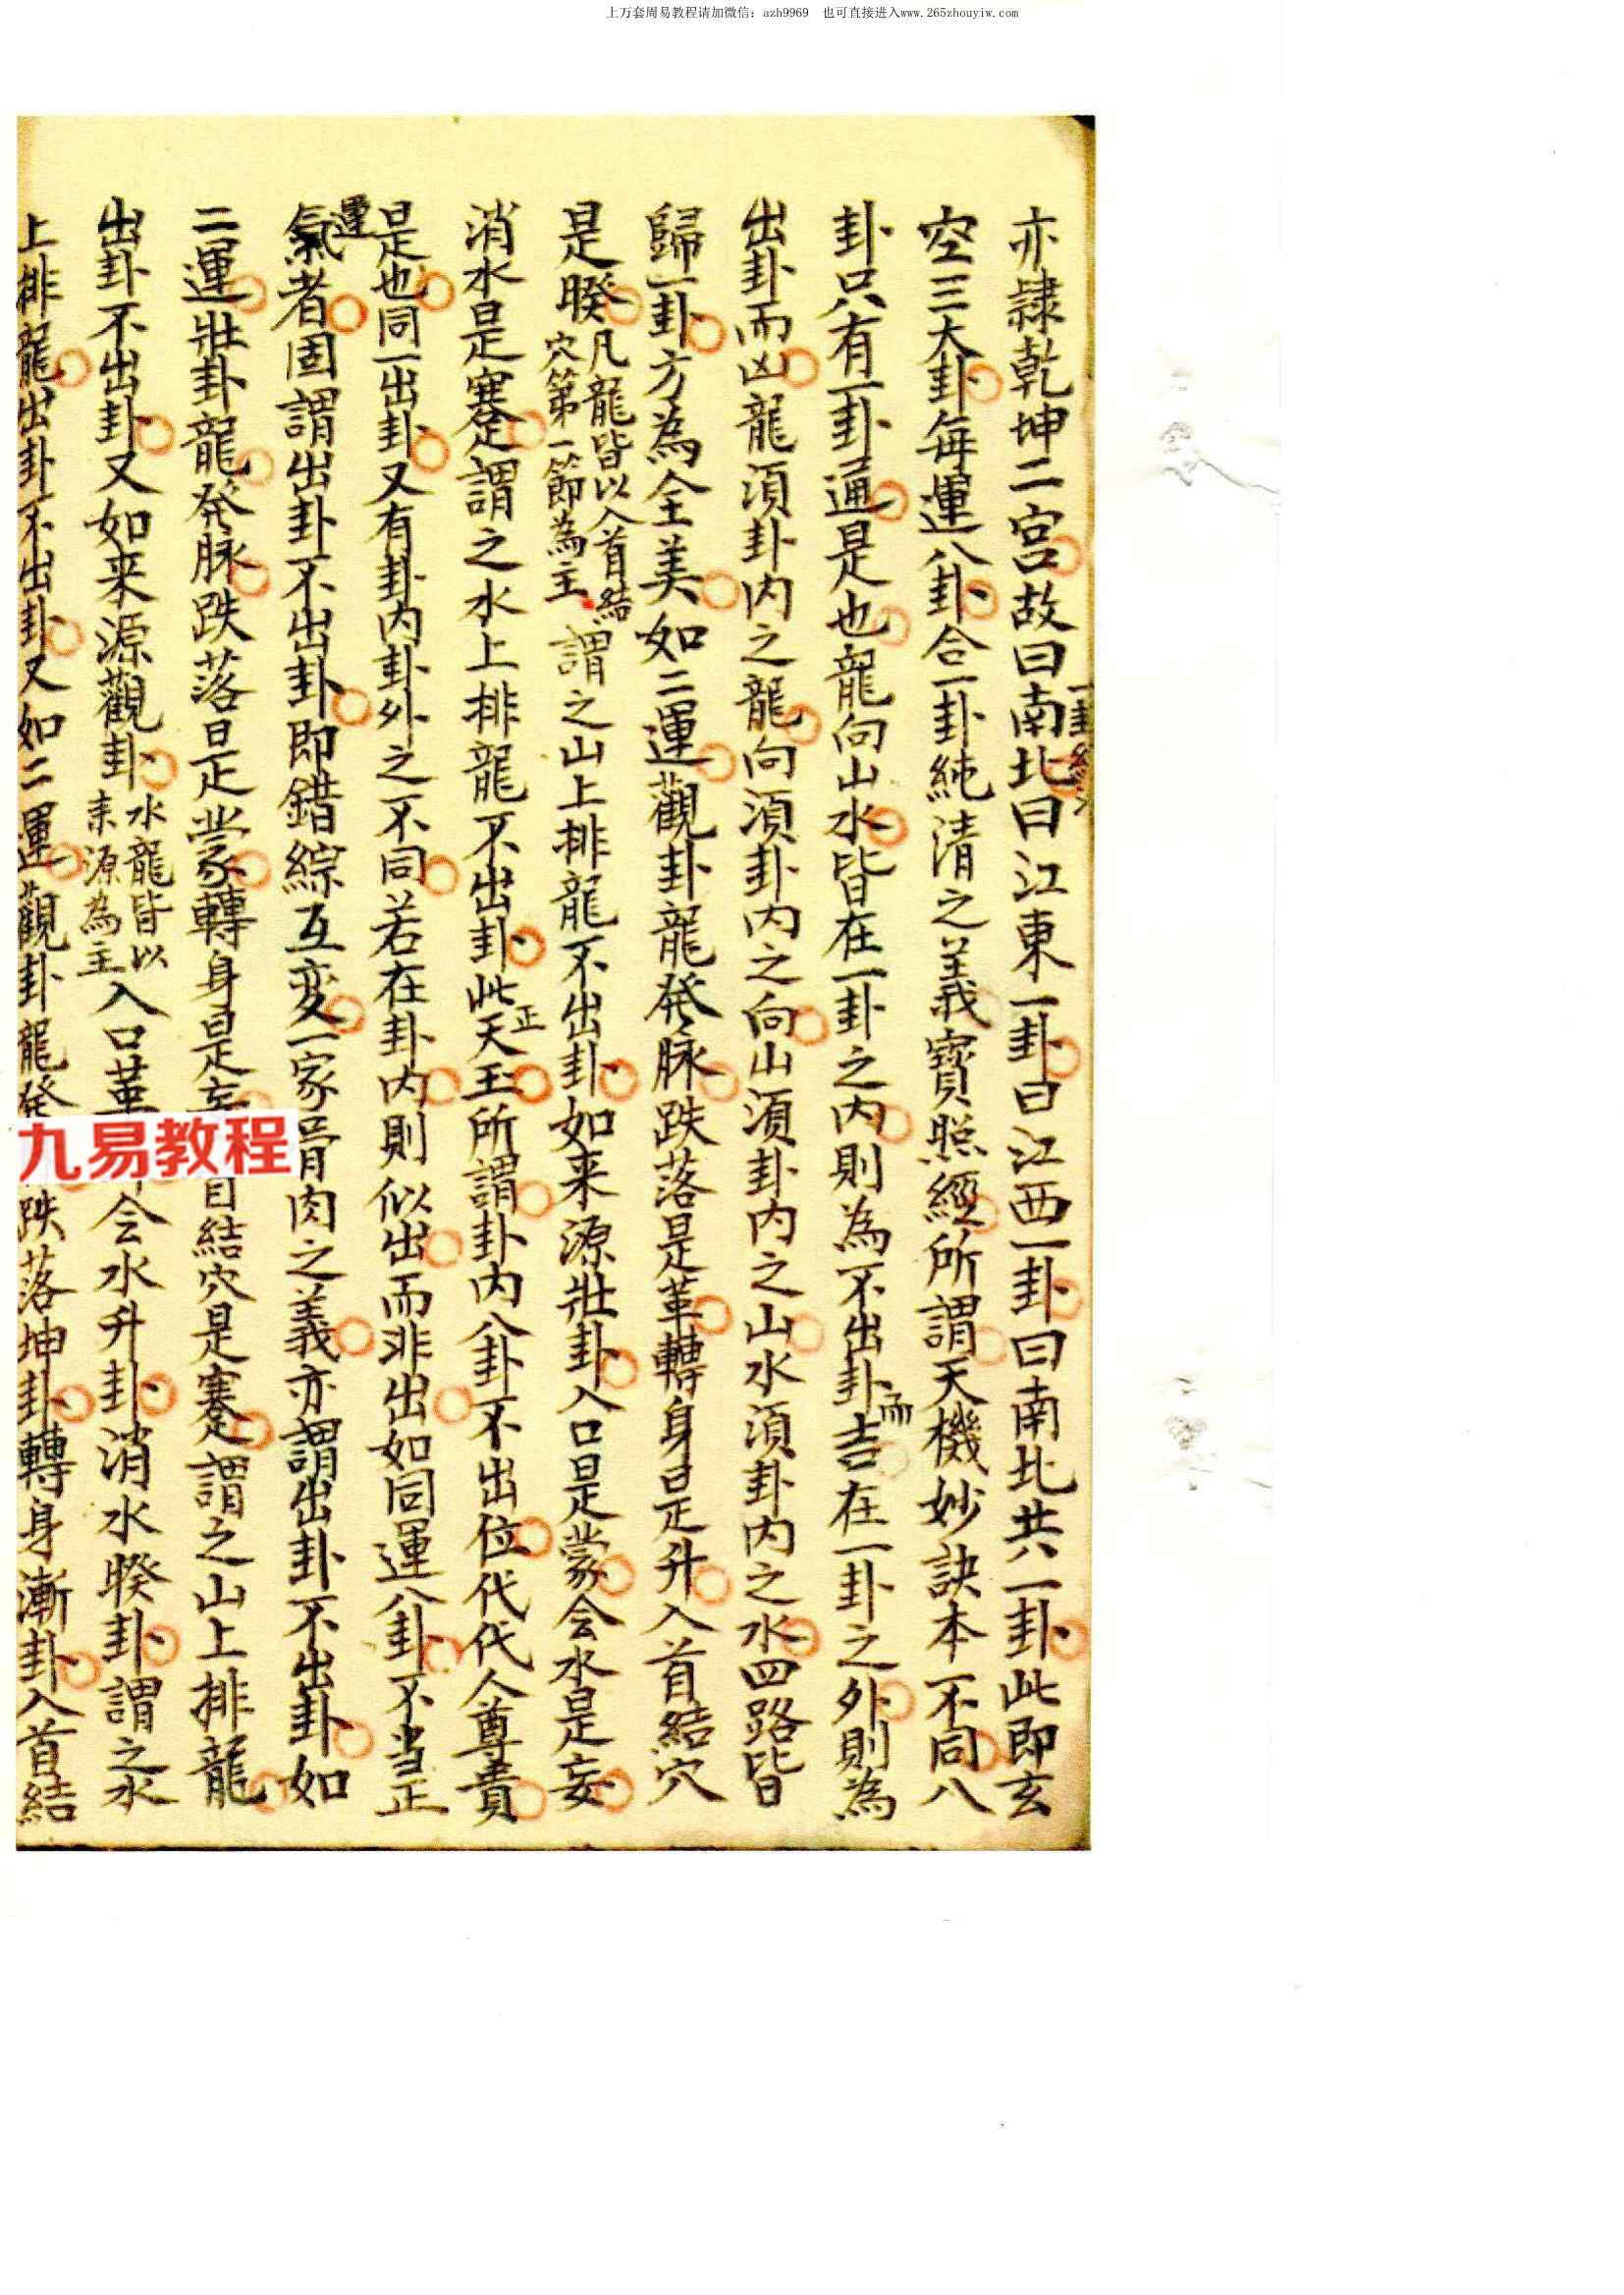 上万套周易教程请加微信：azh9969　也可直接进入www.265zhouyiw.com
亦隸乾坤二宮故曰南北曰江東一卦曰江西一卦曰南北共一卦此即玄
一卦純
空三大卦每運八卦合一卦純清之義寶照經所謂天機妙訣本不同八
卦只有一卦通是也龍向山水皆在一卦之内則為不出卦而吉在一卦之外則為
出卦而凶龍須卦内之龍向須卦内之向山須卦内之山水須卦内之水四路皆
歸一卦方為全美如二運觀卦龍発脉跌落是革轉身是升入首結穴
是睽凡龍皆以入首結
穴第一節為主
謂之山上排龍不出卦如来源壯卦入口是蒙会水是妄
消水是蹇是謂之水上排龍不出卦此正天玉所謂卦内八卦不出位代代人尊貴
是也同一出卦又有卦内卦外之不同若在卦内則似出而非出如同運八卦不当正
運
氣者固謂出卦不出卦即錯綜互変一家骨肉之義亦謂出卦不出卦如
二運壯卦龍発脉跌落是蒙轉身是妄首結穴是蹇是謂之山上排龍
出卦不出卦又如来源觀卦水龍皆以
来源為主
入口革会水升卦消水睽卦謂之水
上排龍出卦不出卦又如二運觀卦龍発跌落坤卦轉身漸卦入首結
九易教程